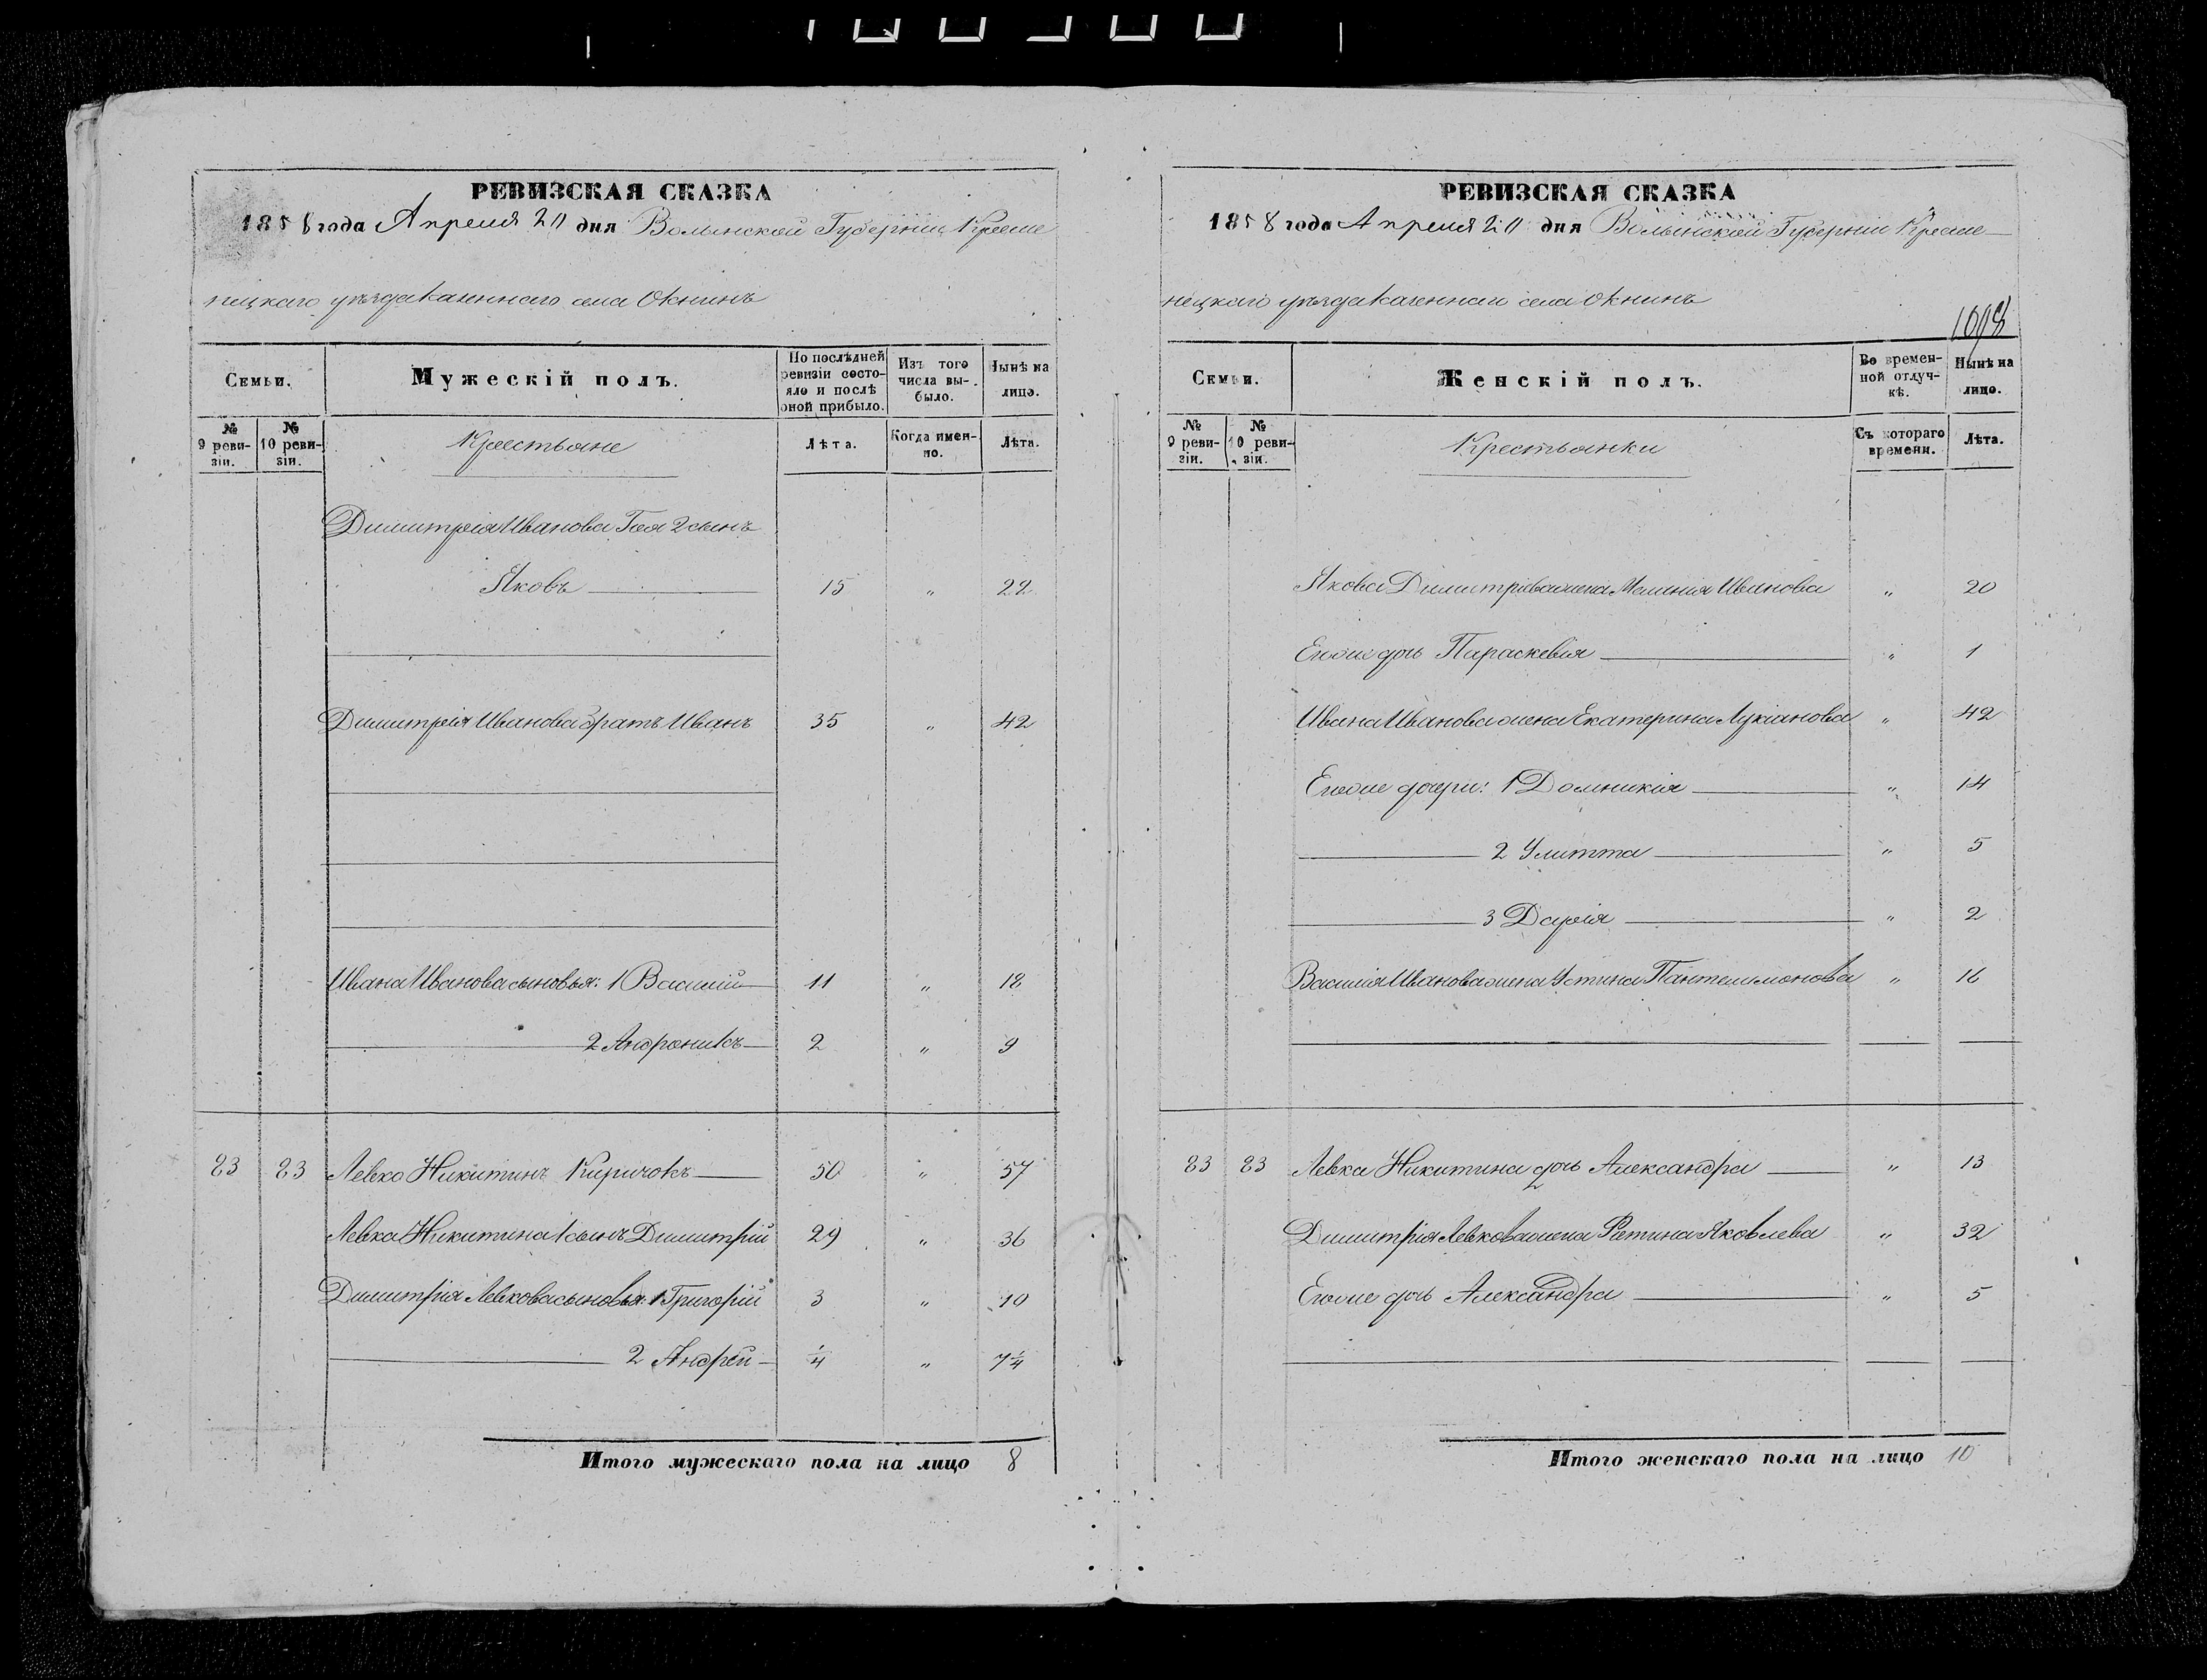 РЕВИЗСКАЯ СКАЗКА
1858 года Апреля 20 дня Волынской Губерніи Креме
нецкаго уѣзда казеннаго села Окнинъ
Семьи.
Мужескій полъ.
По послѣдней ревизіи состояло и послѣ оной прибыло.
Изъ того числа выбыло.
Нынѣ на лицо.
№ 9 ревизіи.
№ 10 ревизіи.
Крестьяне
Лѣта.
Когда именно.
Лѣта.
Димитрія Иванова Гая 2 сынъ
Яковъ 15 " 22
Димитрія Иванова братъ Иванъ 35 " 42
Ивана Иванова сыновья: 1 Василій 11 " 18
2 Андроникъ 2 " 9
83 83 Левко Никитинъ Киричокъ 50 " 57
Левка Никитина 1 сынъ Димитрій 29 " 36
Димитрія Левкова сыновья: 1 Григорій 3 " 10
2 Андрей 1/4 " 7 1/4
Итого мужескаго пола на лицо 8
РЕВИЗСКАЯ СКАЗКА
1858 года Апреля 20 дня Волынской Губерніи Креме
нецкаго уѣзда казеннаго села Окнинъ
Семьи.
Женскій полъ.
Во временной отлучкѣ.
Нынѣ на лицо.
№ 9 ревизіи.
№ 10 ревизіи.
Крестьянки
Съ котораго времени.
Лѣта.
Якова Димитріева жена Меланія Иванова " 20
Егоже дочь Параскевія " 1
Ивана Иванова жена Екатерина Лукіанова " 42
Егоже дочери: 1 Домникія " 14
2 Улитта " 5
3 Дарія " 2
Василія Иванова жена Устина Пантелимонова " 16
83 83 Левка Никитина дочь Александра " 13
Димитрія Левкова жена Фетина Яковлева " 32
Егоже дочь Александра " 5
Итого женскаго пола на лицо 10